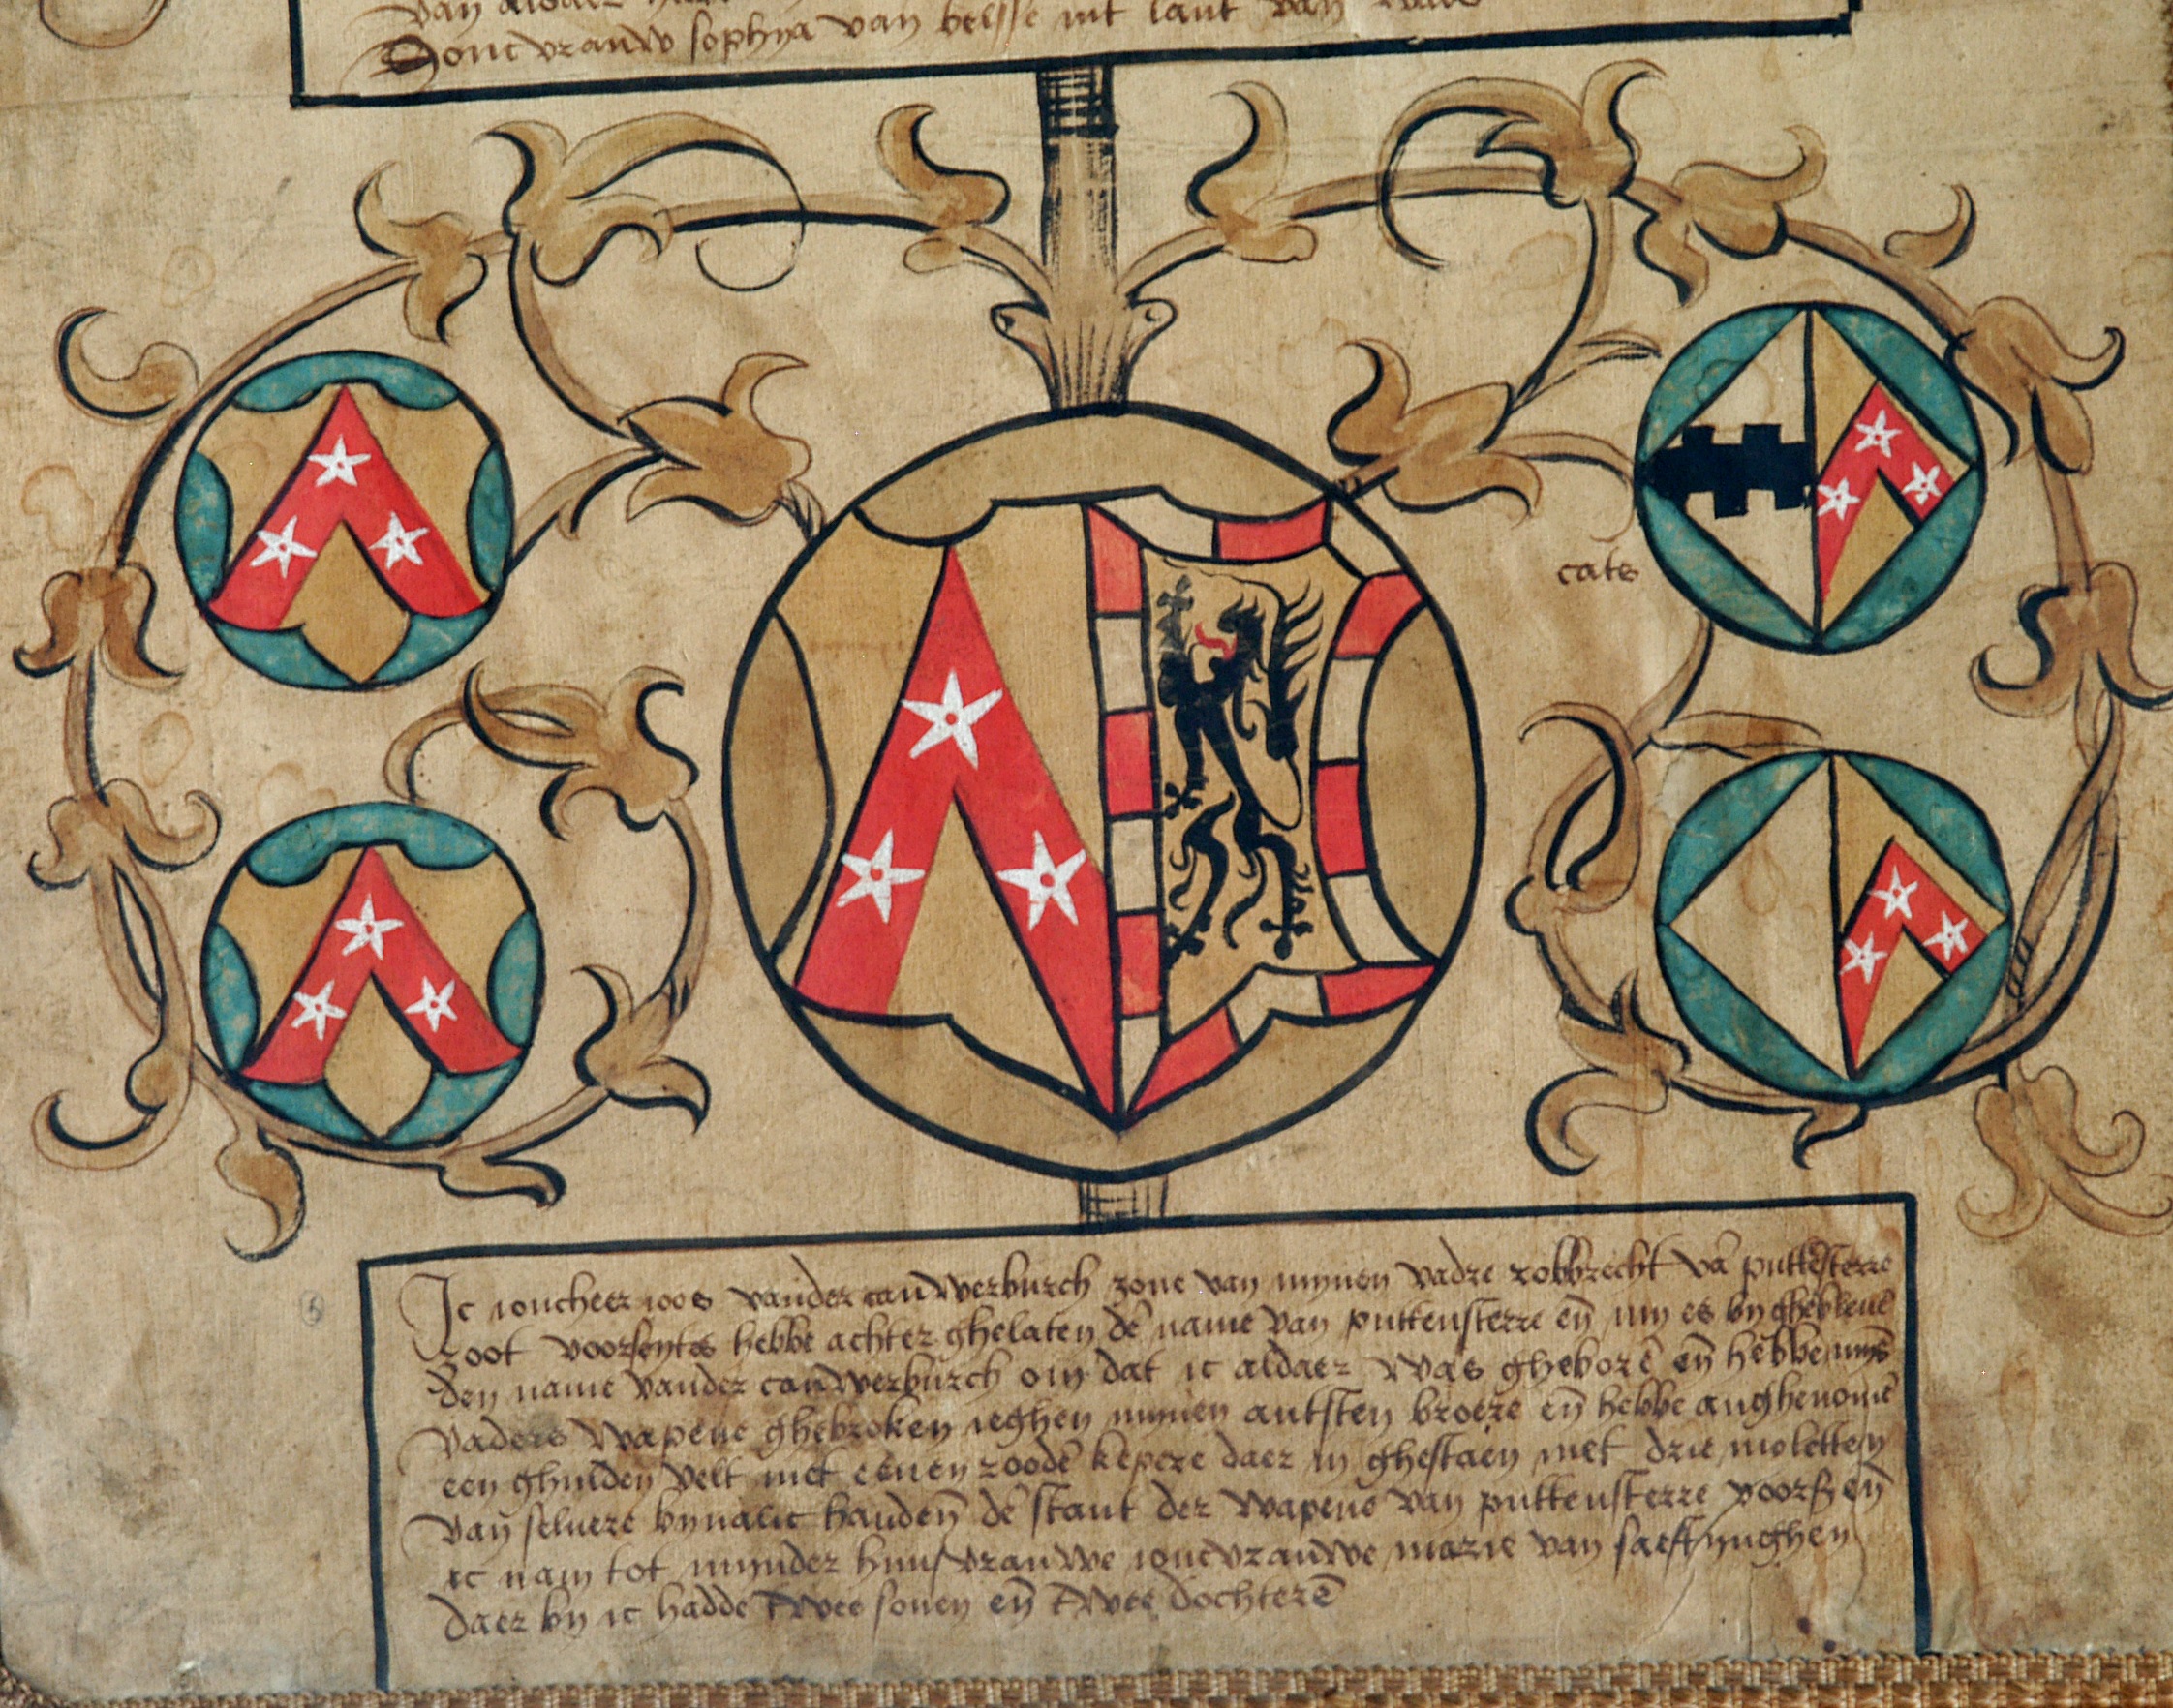 van aldaer
Joncvrauw sophya van belsse uit lant van
cats
Ic joncheer joos vander cauwerburch zone van mynen vadre robbrecht va puttesterre
root voorseyts hebbe achter ghelaten de name van puttensterre en my es by ghebleve
den name vander cauwerburch om dat ic aldaer was ghebore en hebbe myns
vaders wapene ghebroken jeghen mynen autsten broere en hebbe anghenome
een ghulden velt met eenen roode kepere daer in ghestaen met drie moletten
van selvere bynalic hauden de stant der wapene van puttensterre voorseyt en
ic nam tot mynder huusvrauwe joncvrauwe marie van saeftynghen
daer by ic hadde twee sonen en twee dochtere